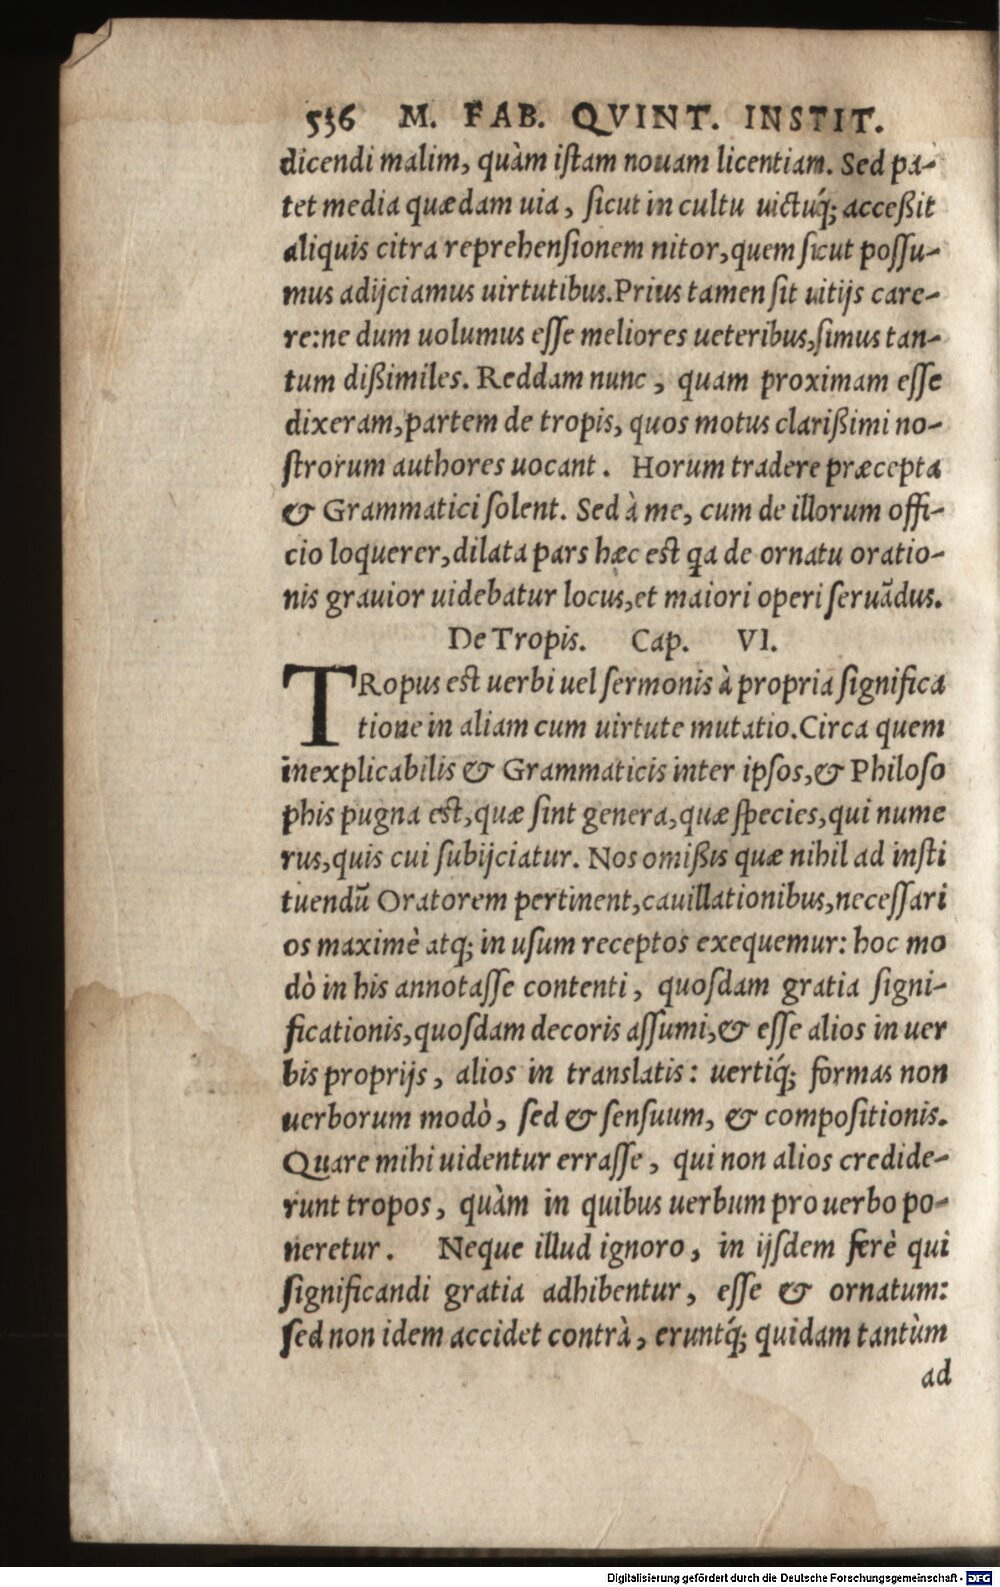 536 M. FAB. QVINT. INSTIT.
dicendi malim, quàm istam nouam licentiam. Sed pa-
tet media quædam uia, sicut in cultu uictuq́; acceßit
aliquis citra reprehensionem nitor, quem sicut possu-
mus adijciamus uirtutibus. Prius tamen sit uitijs care-
re: ne dum uolumus esse meliores ueteribus, simus tan-
tum dißimiles. Reddam nunc, quam proximam esse
dixeram, partem de tropis, quos motus clarißimi no-
strorum authores uocant. Horum tradere præcepta
& Grammatici solent. Sed à me, cum de illorum offi-
cio loquerer, dilata pars hæc est qa de ornatu oratio-
nis grauior uidebatur locus, et maiori operi seruãdus.
De Tropis. Cap. VI.
TRopus est uerbi uel sermonis à propria significa
tione in aliam cum uirtute mutatio. Circa quem
inexplicabilis & Grammaticis inter ipsos, & Philoso
phis pugna est, quæ sint genera, quæ species, qui nume
rus, quis cui subijciatur. Nos omißis quæ nihil ad insti
tuendũ Oratorem pertinent, cauillationibus, necessari
os maximè atq; in usum receptos exequemur: hoc mo
dò in his annotasse contenti, quosdam gratia signi-
ficationis, quosdam decoris assumi, & esse alios in uer
bis proprijs, alios in translatis: uertiq́; formas non
uerborum modò, sed & sensuum, & compositionis.
Quare mihi uidentur errasse, qui non alios credide-
runt tropos, quàm in quibus uerbum pro uerbo po-
neretur. Neque illud ignoro, in ijsdem ferè qui
significandi gratia adhibentur, esse & ornatum:
sed non idem accidet contrà, eruntq́; quidam tantùm
ad
Digitalisierung gefördert durch die Deutsche Forschungsgemeinschaft - DFG